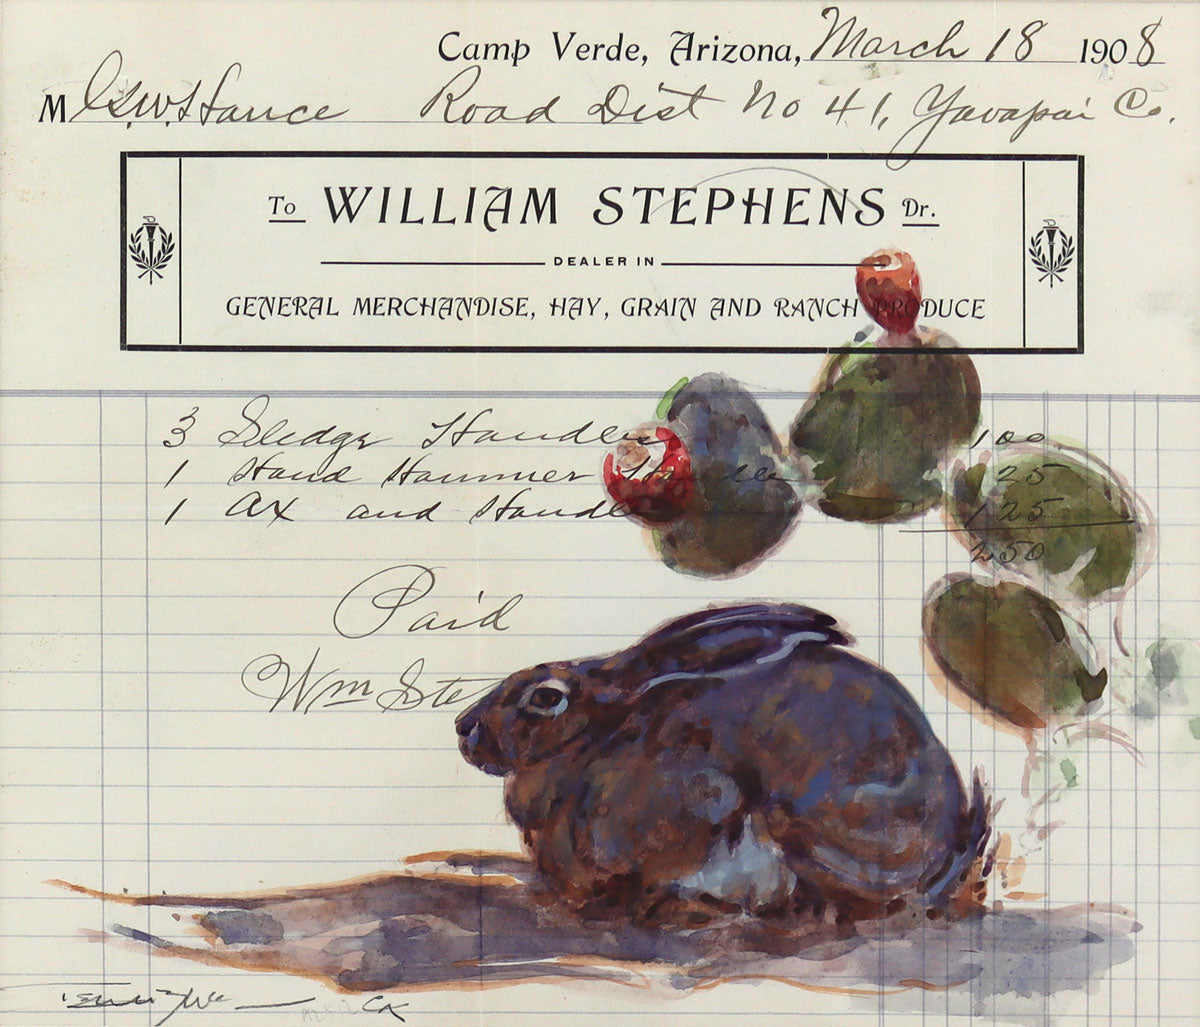 Camp Verde, Arizona, March 18 1908
M G.W. Hance Road Dist No 41, Yavapai Co.
To WILLIAM STEPHENS Dr.
DEALER IN
GENERAL MERCHANDISE, HAY, GRAIN AND RANCH PRODUCE
3 Sledge Handles 100
1 Hand Hammer Handle 25
1 Ax and Handle 125
250
Paid
Wm Ste
CA